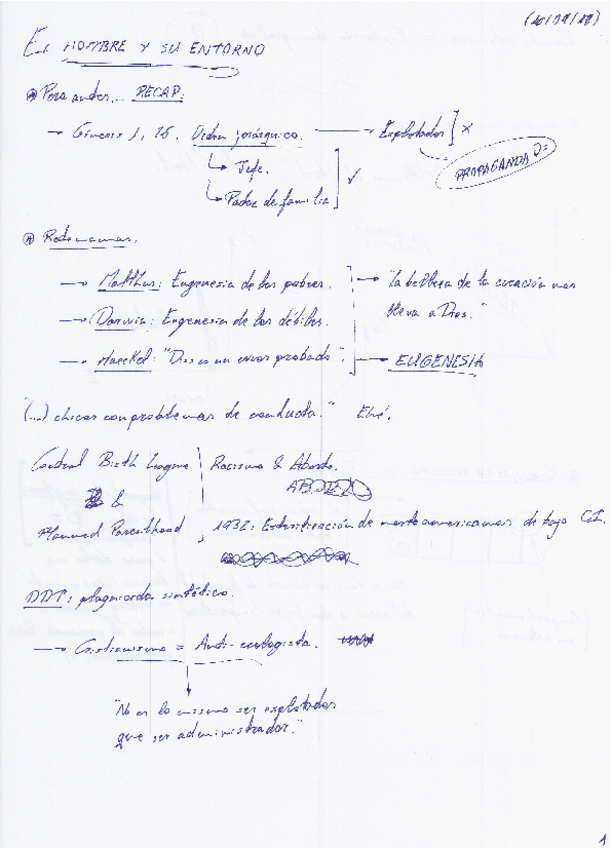 EL HOMBRE Y SU ENTORNO
Para andar... RECAP:
→ Génesis 1, 26. Orden jerárquico. → Explotador ] x
↳ Jefe.
↳ Padre de familia ] ✓
PROPAGANDA
→ Malthus: Eugenesia de los pobres. → "La belleza de la creación nos
lleva a Dios."
→ Darwin: Eugenesia de los débiles.
→ Haeckel: "Dios es un error probado". → EUGENESIA
"(...) chicos con problemas de conducta."
Control Birth League
&
Planned Parenthood
Racismo & Aborto.
1932: Esterilización de norteamericanos de bajo C.I.
DDT: plaguicida sintético.
→ Cristianismo = Anti-ecologista.
"No es lo mismo ser explotador
que ser administrador."
1